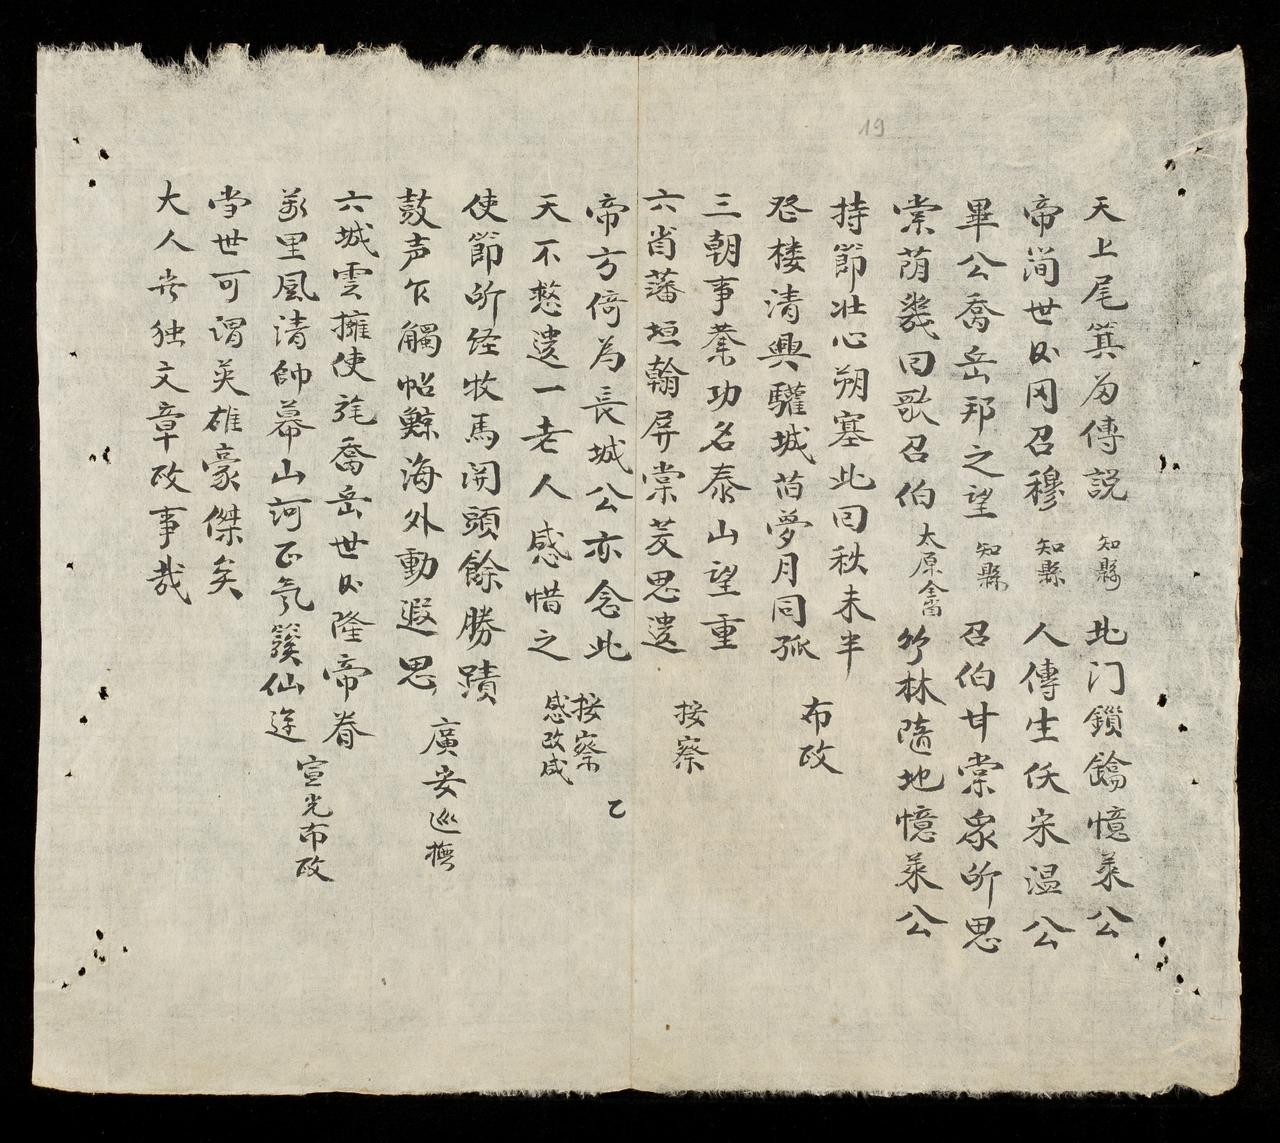 19
天上尾箕為傅説 知縣 北门鎖鑰憶萊公
帝簡世臣冈召穆 知縣 人傳生仸宋温公
畢公喬岳邦之望 知縣 召伯甘棠衆所思
棠荫幾囘歌召伯 太原全省 竹林隨地憶萊公
持節壮心朔塞此囘秩未半
登楼清興驩城旧夢月同孤 布政
三朝事業功名泰山望重
六省藩垣翰屏棠茇思遺 按察
帝方倚為長城公亦念此
天不憗遺一老人感惜之 按察 感改咸 乙
使節所経牧馬関頭餘勝蹟
鼓声乍觸帖鯨海外動遐思 廣安巡撫
六城雲擁使旄喬岳世臣隆帝眷
萬里風清帥幕山河正氣簇仙遊 宣光布政
当世可谓英雄豪傑矣
大人豈独文章政事哉